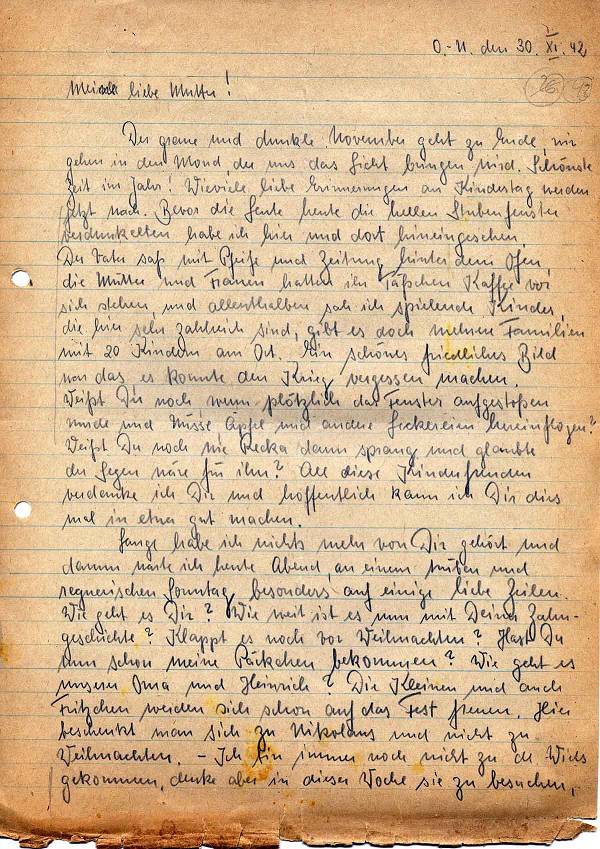 O.-U. den 30. XI. 42
26
Meine liebe Mutter!
Der graue und dunkle November geht zu Ende, wir
gehen in den Mond, der uns das Licht bringen wird. Schönste
Zeit im Jahr! Wieviele liebe Erinnerungen an Kindertag werden
jetzt wach. Bevor die Leute heute die hellen Stubenfenster
verdunkelten habe ich hier und dort hineingesehen.
Der Vater saß mit Pfeife und Zeitung hinter dem Ofen,
die Mütter und Frauen hatten ihr Täßchen Kaffee vor
sich stehen, und allenthalben sah ich spielende Kinder,
die hier sehr zahlreich sind, gibt es doch mehrere Familien
mit 20 Kindern am Ort. Ein schönes friedliches Bild
war das, es konnte den Krieg vergessen machen.
Weißt Du noch, wenn plötzlich das Fenster aufgestoßen
wurde und Nüsse, Äpfel und andere Leckereien hereinflogen?
Weißt Du noch wie Recka dann sprang und glaubte
der Segen wäre für ihn? All diese Kinderfreuden
verdanke ich Dir und hoffentlich kann ich Dir dies
mal in etwa gut machen.
Lange habe ich nichts mehr von Dir gehört und
darum warte ich heute Abend, an einem trüben und
regnerischen Sonntag, besonders auf einige liebe Zeilen.
Wie geht es Dir? Wie weit ist es nun mit Deiner Zahn-
geschichte? Klappt es noch vor Weihnachten? Hast Du
nun schon meine Päckchen bekommen? Wie geht es
unserer Oma und Heinrich? Die Kleinen und auch
Fritzchen werden sich schon auf das Fest freuen. Hier
beschenkt man sich zu Nikolaus und nicht zu
Weihnachten. - Ich bin immer noch nicht zu de
gekommen, denke aber in dieser Woche sie zu besuchen,